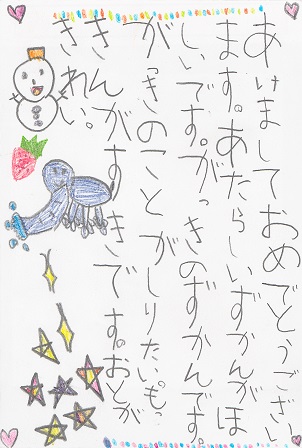 あけましておめでとうござい
ます。あたらしいずかんがほ
しいです。がっきのずかんです。
がっきのことがしりたい。もっ
きんがすきです。おとが
きれい。